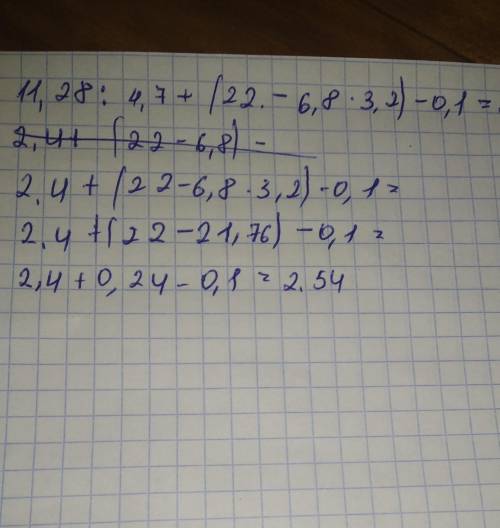 11,28: 4,7+ (22.-6,8·3,2)-0,1=
2,4+ (22-6,8)-
2.4+(22-6,8·3,2)-0,1=
2.4+(22-21,76)-0,1=
2,4+0,24-0,1=2.54